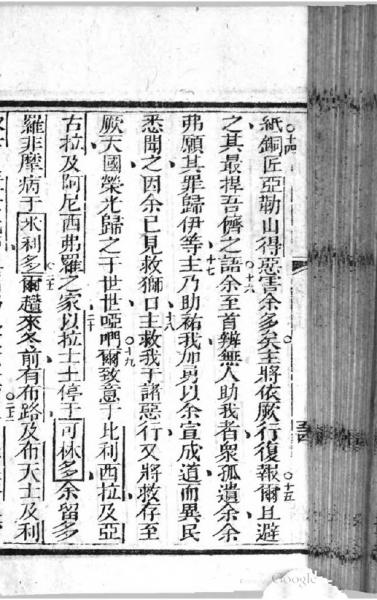 紙銅匠亞勒山得惡害余多矣主將依厥行復報爾且避
之其最捍吾儕之語余至首辨無人助我者衆孤遺余余
弗願其罪歸伊等主乃助祐我加勇以余宣成道而異民
悉聞之因余已見救獅口主救我于諸惡行又將救存至
厥天國榮光歸之于世世啞們爾致意于比利西拉及亞
古拉及阿尼西弗羅之家以拉士土停于可林多余留多
羅非摩病于米利多爾趲來冬前有布路及布天士及利